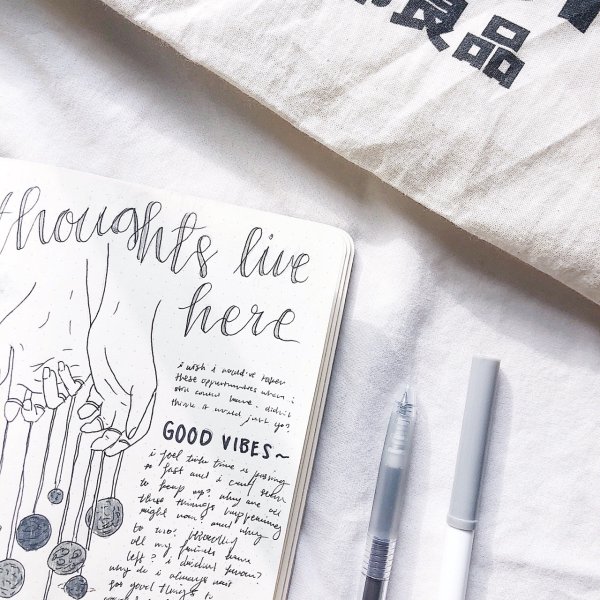 良品
thoughts live
here
i wish i would've taken
these opportunities when i
still could have. didn't
think it would just go?
GOOD VIBES~
i feel like time is passing
so fast and i can't seem
to keep up? why are all
these things happening
right now? and why
to me?
all my friends have
left? i
why do i always wait
for good things to